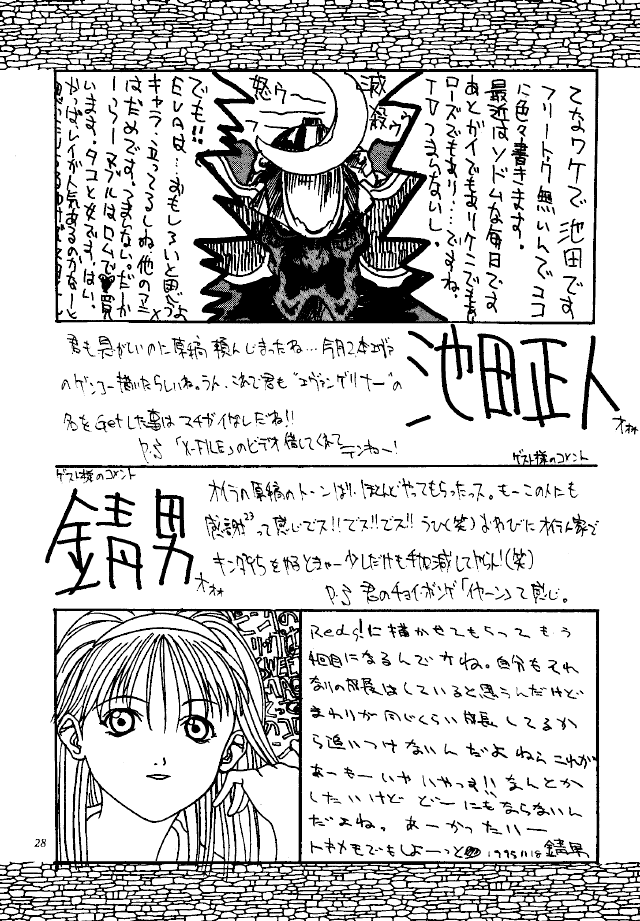 てなワケで池田です
フリートク無いんでココ
に色々書きます。
最近はソドムな毎日です
あとガイでもありケニでもあり
ローズでもあり…ですね。
TVつまんないし。
滅
殺ゥ
怒ゥ
でも!!
EVAは…おもしろいと思うよ
キャラ立ってるしね他のアニメ
はだめです。つまんない。だーか
らーアプルはロムで買
います。タコと女です。はい。
やっぱレイが人気あるのかなーと
君も急がしいのに原稿頼んじまったね…今月2本エヴァ
のゲンコー描いたらしいね。うん、これで君も"エヴァンゲリナー"の
名をGetした事はマチガイなしだね!!
P.S 「X-FILE」のビデオ借してくれて
サンキュー!
池田正人
ゲスト様のコメント
ゲスト様のコメント
錆男
オイラの原稿のトーンばりほとんどやってもらったっス。もーこの人にも
感謝²³って感じでス!!でス!!でス!!うひく(笑)
P.S 君のチョイ・ボンゲ「イヤーン」って感じ。
Red's!に描かせてもらってもう
4回目になるんですね。自分もそれ
なりの成長はしていると思うんだけど
まわりが同じくらい成長してるか
ら追いつけないんだよねら これが
あーもーいやいやっす!!なんとか
したいけどどーにもならないん
だよね。あーかったいー
トキメモでもしよーっと 1995.11.18 錆男
28